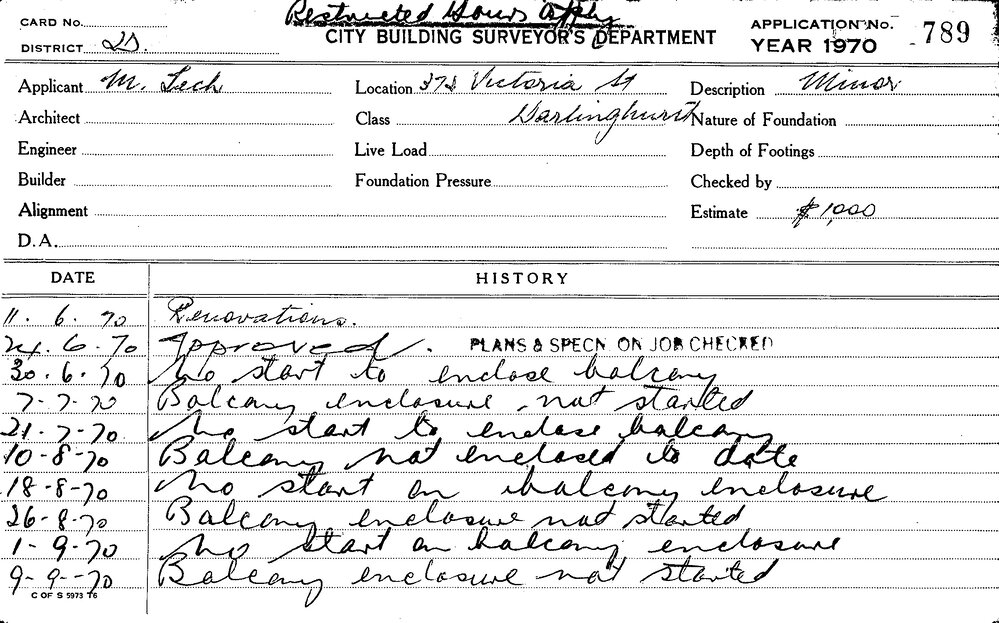 Restricted Hours apply
CARD No.
CITY BUILDING SURVEYOR'S DEPARTMENT
APPLICATION No. 789
DISTRICT 2D.
YEAR 1970
Applicant M. Lech Location 372 Victoria St Description Minor
Architect Class Darlinghurst Nature of Foundation
Engineer Live Load Depth of Footings
Builder Foundation Pressure Checked by
Alignment Estimate $1,000
D.A.
DATE HISTORY
11. 6. 70 Renovations.
24. 6. 70 Approved. PLANS & SPECN. ON JOB CHECKED
30. 6. 70 No start to enclose balcony
7-7-70 Balcony enclosure not started
21-7-70 No start to enclose balcony
10-8-70 Balcony not enclosed to date
18-8-70 No start on balcony enclosure
26-8-70 Balcony enclosure not started
1-9-70 No start on balcony enclosure
9-9-70 Balcony enclosure not started
C OF S 5973 T6